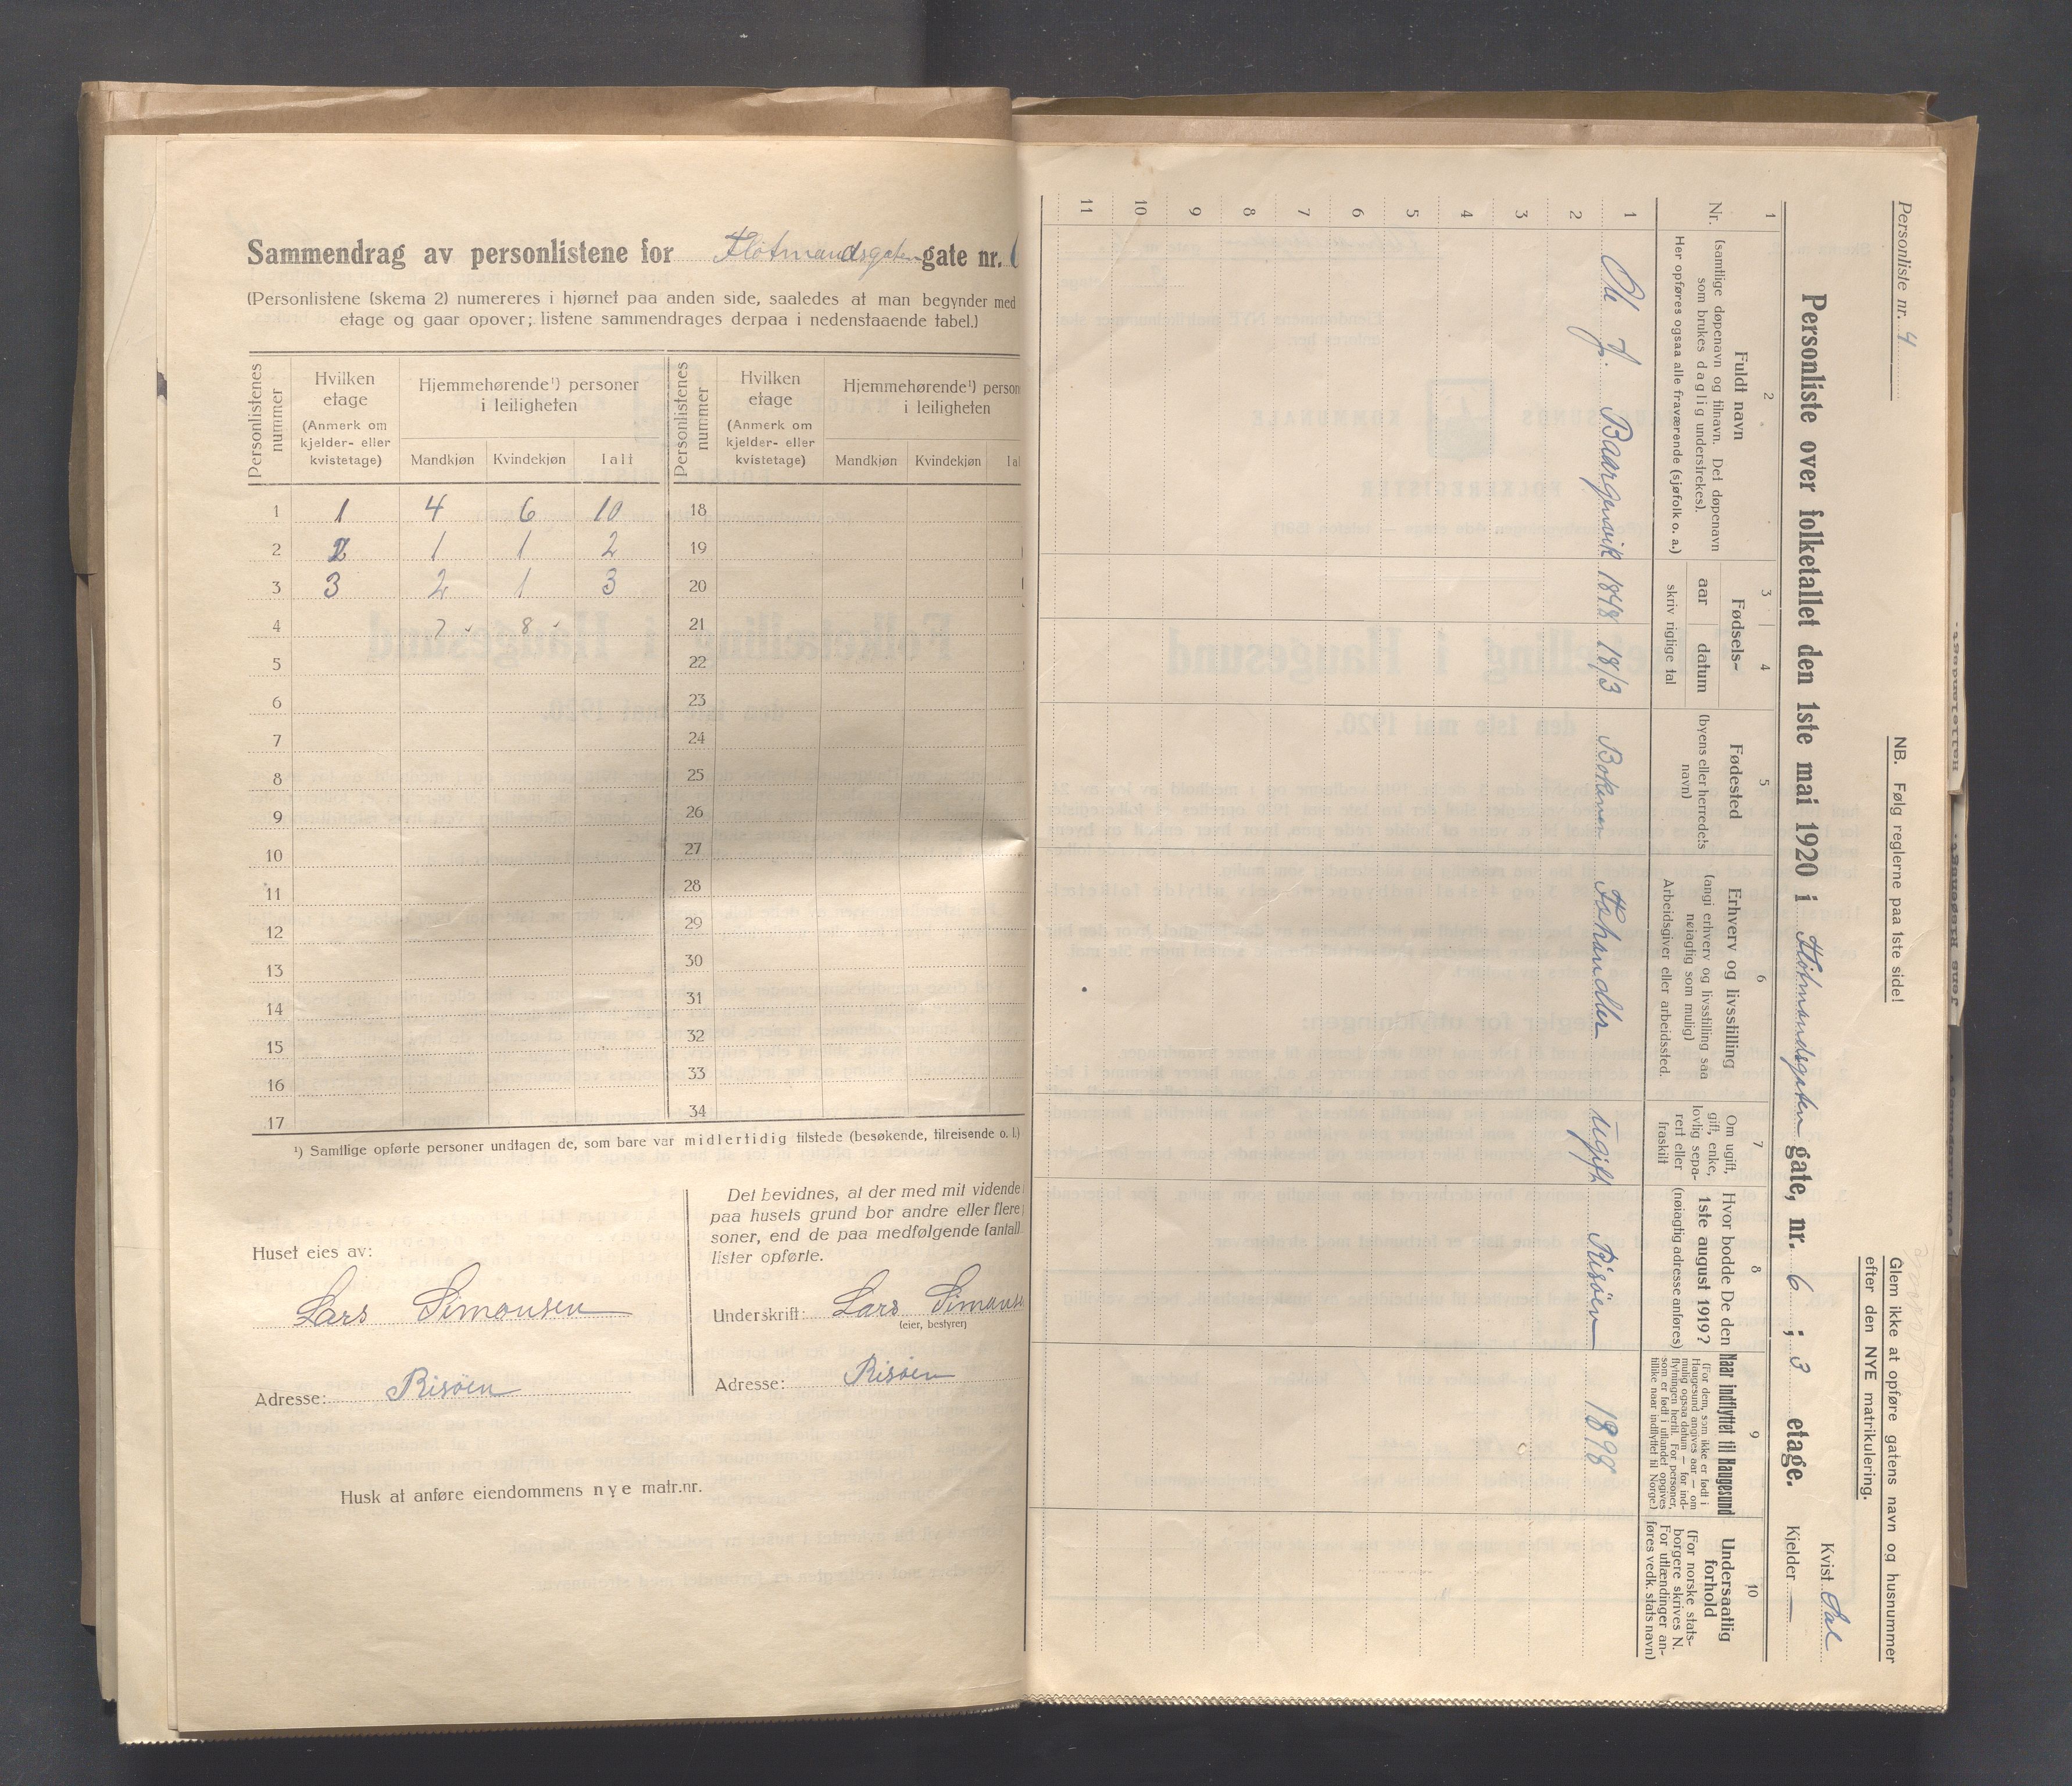 Sammendrag av personlistene for Flötmandsgaten gate nr.
(Personlistene (skema 2) numereres i hjørnet paa anden side, saaledes at man begynder med
etage og gaar opover; listene sammendrages derpaa i nedenstaaende tabel.)
Personlistenes nummer
Hvilken etage (Anmerk om kjelder- eller kvistetage)
Hjemmehørende¹) personer i leiligheten
Mandkjøn Kvindekjøn Ialt
Personlistenes nummer
Hvilken etage (Anmerk om kjelder- eller kvistetage)
Hjemmehørende¹) person
i leiligheten
Mandkjøn Kvindekjøn Ial
1 1 4 6 10 18
2 2 1 1 2 19
3 3 2 1 3 20
4 7 8 21
5 22
6 23
7 24
8 25
9 26
10 27
11 28
12 29
13 30
14 31
15 32
16 33
17 34
¹) Samtlige opførte personer undtagen de, som bare var midlertidig tilstede (besøkende, tilreisende o. l.)
Huset eies av:
Lars Simonsen
Adresse: Risöen
Det bevidnes, at der med mit vidende
paa husets grund bor andre eller flere
soner, end de paa medfølgende (antall
lister opførte.
Underskrift: Lars Simons
(eier, bestyrer)
Adresse: Risöen
Husk at anføre eiendommens nye matr.nr.
Personliste nr. 4
NB. Følg reglerne paa 1ste side!
Glem ikke at opføre gatens navn og husnummer
efter den NYE matrikulering.
Personliste over folketallet den 1ste mai 1920 i Flötmandsgaten gate, nr. 6 ; 3 etage.
Kvist Sal
Kjelder —
1 2 3 4 5 6 7 8 9 10
Nr.
Fuldt navn
(samtlige døpenavn og tilnavn. Det døpenavn
som brukes daglig understrekes).
Her opføres ogsaa alle fraværende (sjøfolk o. a.)
Fødsels-
aar datum
skriv rigtige tal
Fødested
(byens eller herredets
navn)
Erhverv og livsstilling
(angi erhverv og livsstilling saa
nøiagtig som mulig)
Arbeidsgiver eller arbeidssted.
Om ugift,
gift, enke,
lovlig sepa-
rert eller
fraskilt
Hvor bodde De den
1ste august 1919?
(nøiagtig adresse anføres)
Naar indflyttet til Haugesund
(For dem, som ikke er født i
Haugesund angives aar — om
mulig ogsaa datum — for ind-
flytningen hertil. For personer,
som er født i utlandet opgives
tillike naar indflyttet til Norge.)
Undersaatlig
forhold
(For norske stats-
borgere skrives N.
For utlændinger an-
føres vedk. stats navn)
1 Ole J. Baargenvik 1848 18/3 Boknen Fehandler ugift Risöen 1898
2
3
4
5
6
7
8
9
10
11